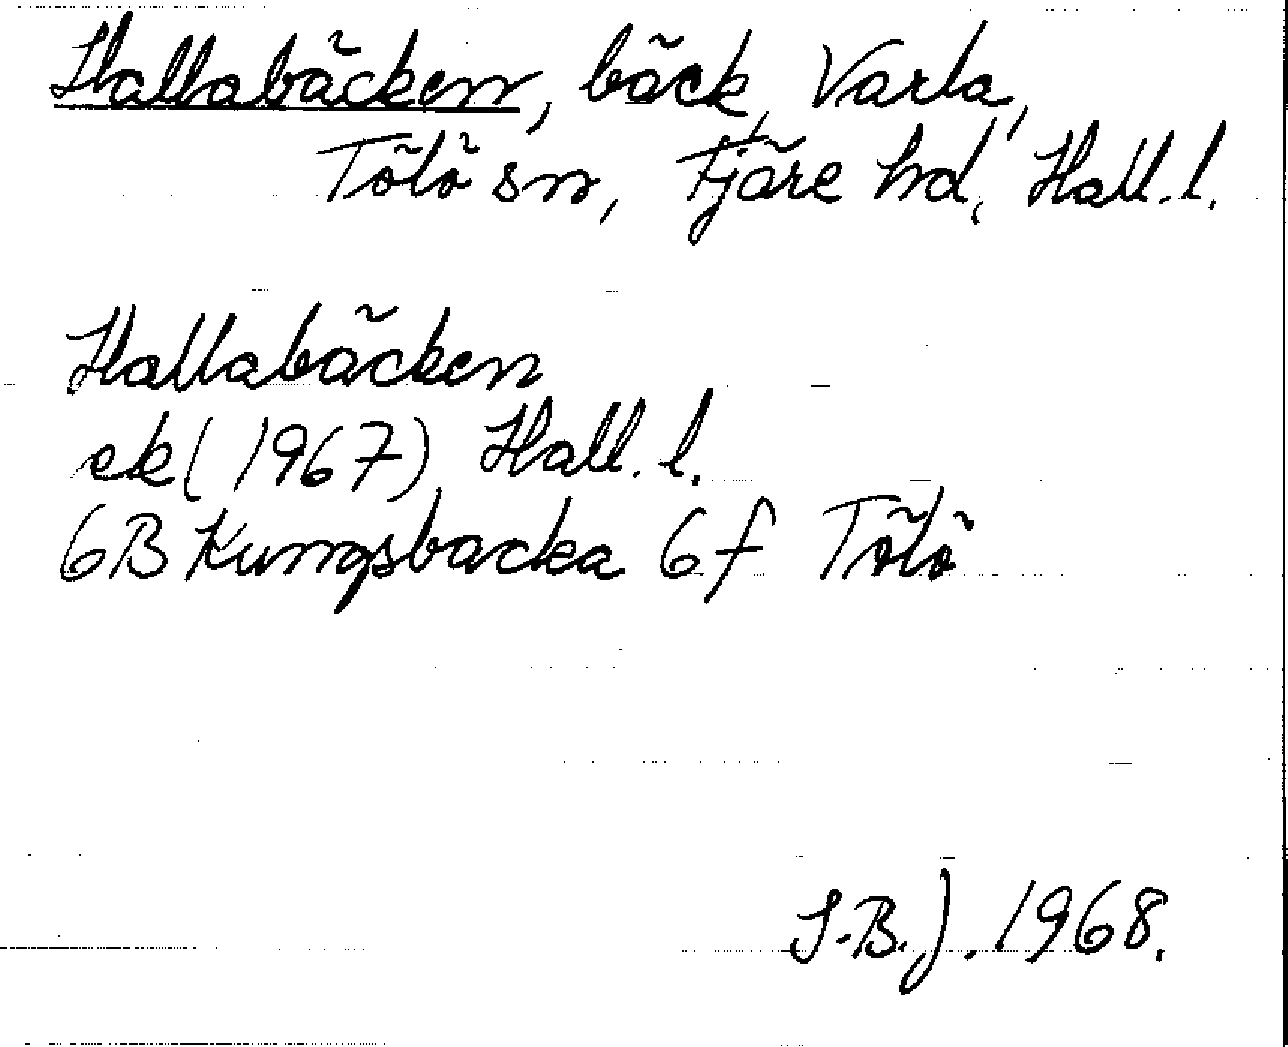 Hallabäcken, bäck, Varla,
Tölö sn, Fjäre hd, Hall. l.
Hallabäcken
ek (1967) Hall. l.
6B Kungsbacka 6f Tölö
S.B.J. 1968.